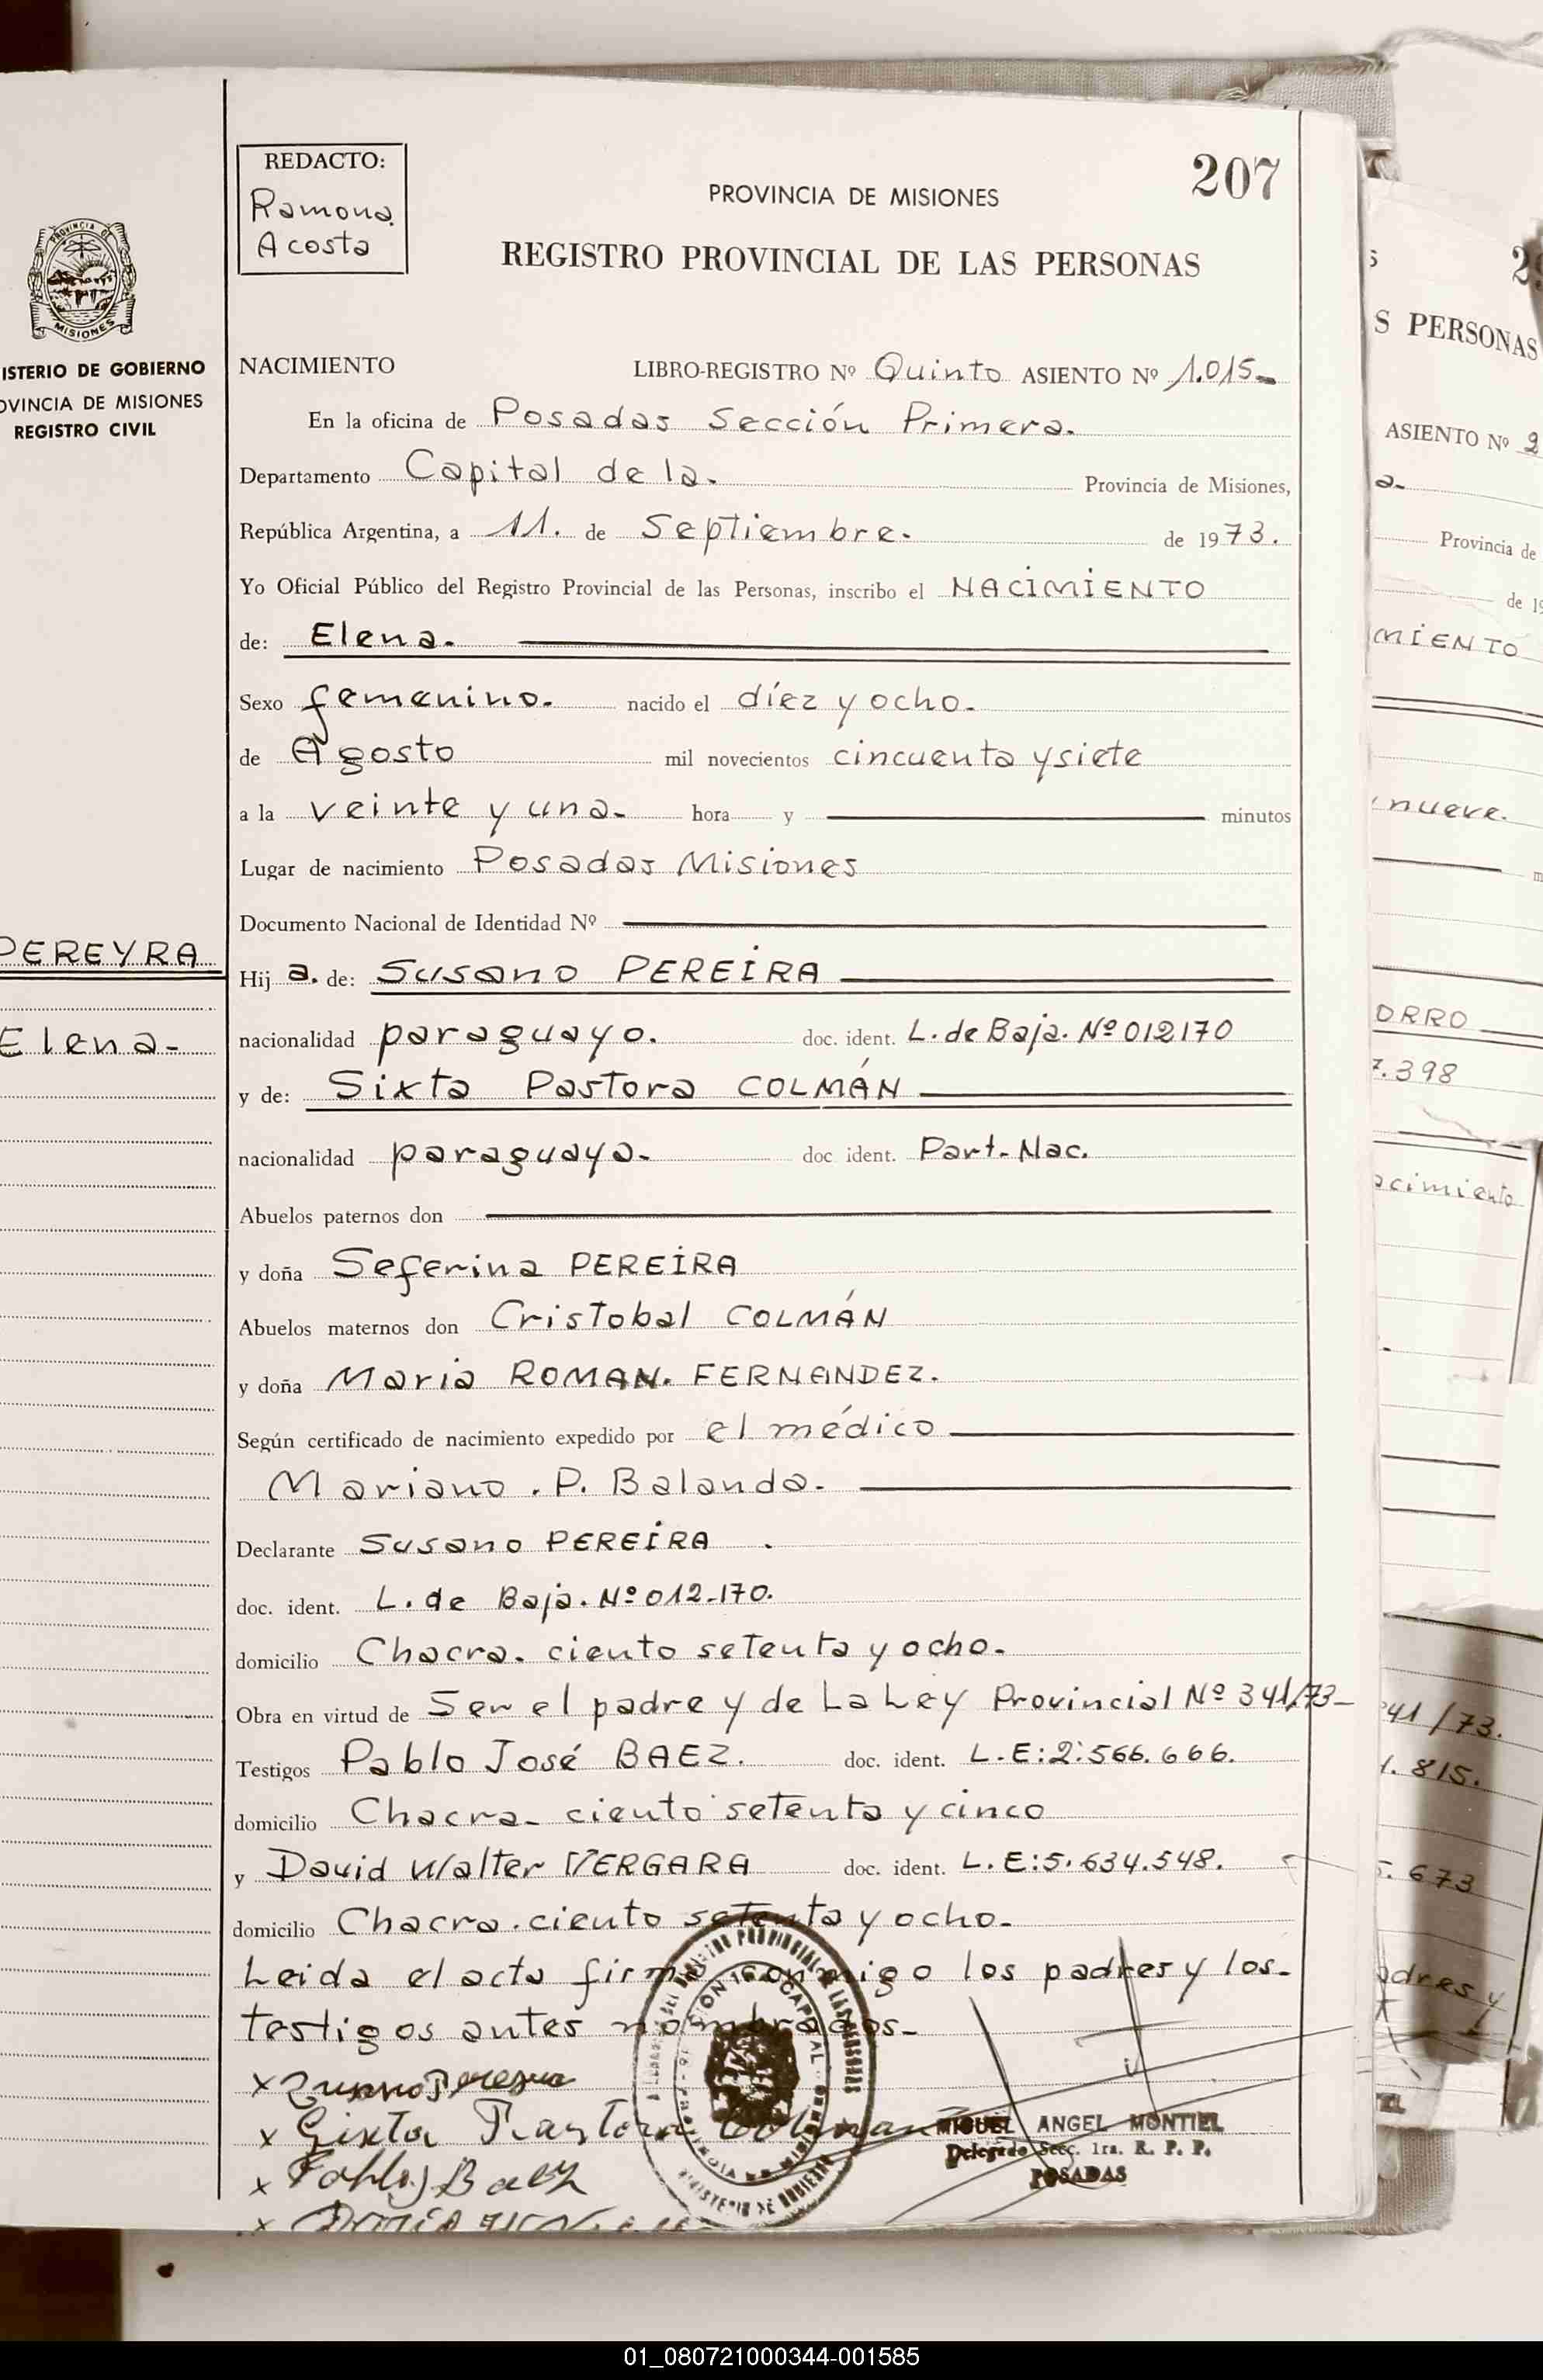 REDACTO:
Ramona.
Acosta
207
PROVINCIA DE MISIONES
REGISTRO PROVINCIAL DE LAS PERSONAS
PROVINCIA DE
MISIONES
ISTERIO DE GOBIERNO
OVINCIA DE MISIONES
REGISTRO CIVIL
PEREYRA
Elena-
NACIMIENTO LIBRO-REGISTRO Nº Quinto ASIENTO Nº 1.015-
En la oficina de Posadas Sección Primera.
Departamento Capital de la. Provincia de Misiones,
República Argentina, a 11. de Septiembre. de 1973.
Yo Oficial Público del Registro Provincial de las Personas, inscribo el NACIMIENTO
de: Elena.
Sexo femenino. nacido el díez y ocho.
de Agosto mil novecientos cincuenta y siete
a la veinte y una- hora y minutos
Lugar de nacimiento Posadas Misiones
Documento Nacional de Identidad Nº
Hij a. de: Susano PEREIRA
nacionalidad paraguayo. doc. ident. L. de Baja. Nº 012170
y de: Sixta Pastora COLMÁN
nacionalidad paraguaya. doc ident. Part. Nac.
Abuelos paternos don
y doña Seferina PEREIRA
Abuelos maternos don Cristobal COLMÁN
y doña Maria ROMAN. FERNANDEZ.
Según certificado de nacimiento expedido por el médico
Mariano . P. Balanda-
Declarante Susano PEREIRA .
doc. ident. L. de Baja. Nº 012-170.
domicilio Chacra. ciento setenta y ocho.
Obra en virtud de Ser el padre y de La Ley Provincial Nº 341/73-
Testigos Pablo José BAEZ. doc. ident. L.E:2:566.666.
domicilio Chacra- ciento setenta y cinco
y David Walter VERGARA doc. ident. L.E:5.634.548.
domicilio Chacra. ciento setenta y ocho-
Leida el acta firma conmigo los padres y los-
testigos antes nombrados-
x Sixta Pastora Colman
x Pablo J Baez
MIGUEL ANGEL MONTIEL
Delegado Secc. 1ra. R. P. P.
POSADAS
S PERSONAS
ASIENTO Nº 2
a-
Provincia de
de 19
MIENTO
nueve.
ORRO
7.398
acimiento
41/73.
1.815.
5.673
adres y
01_080721000344-001585